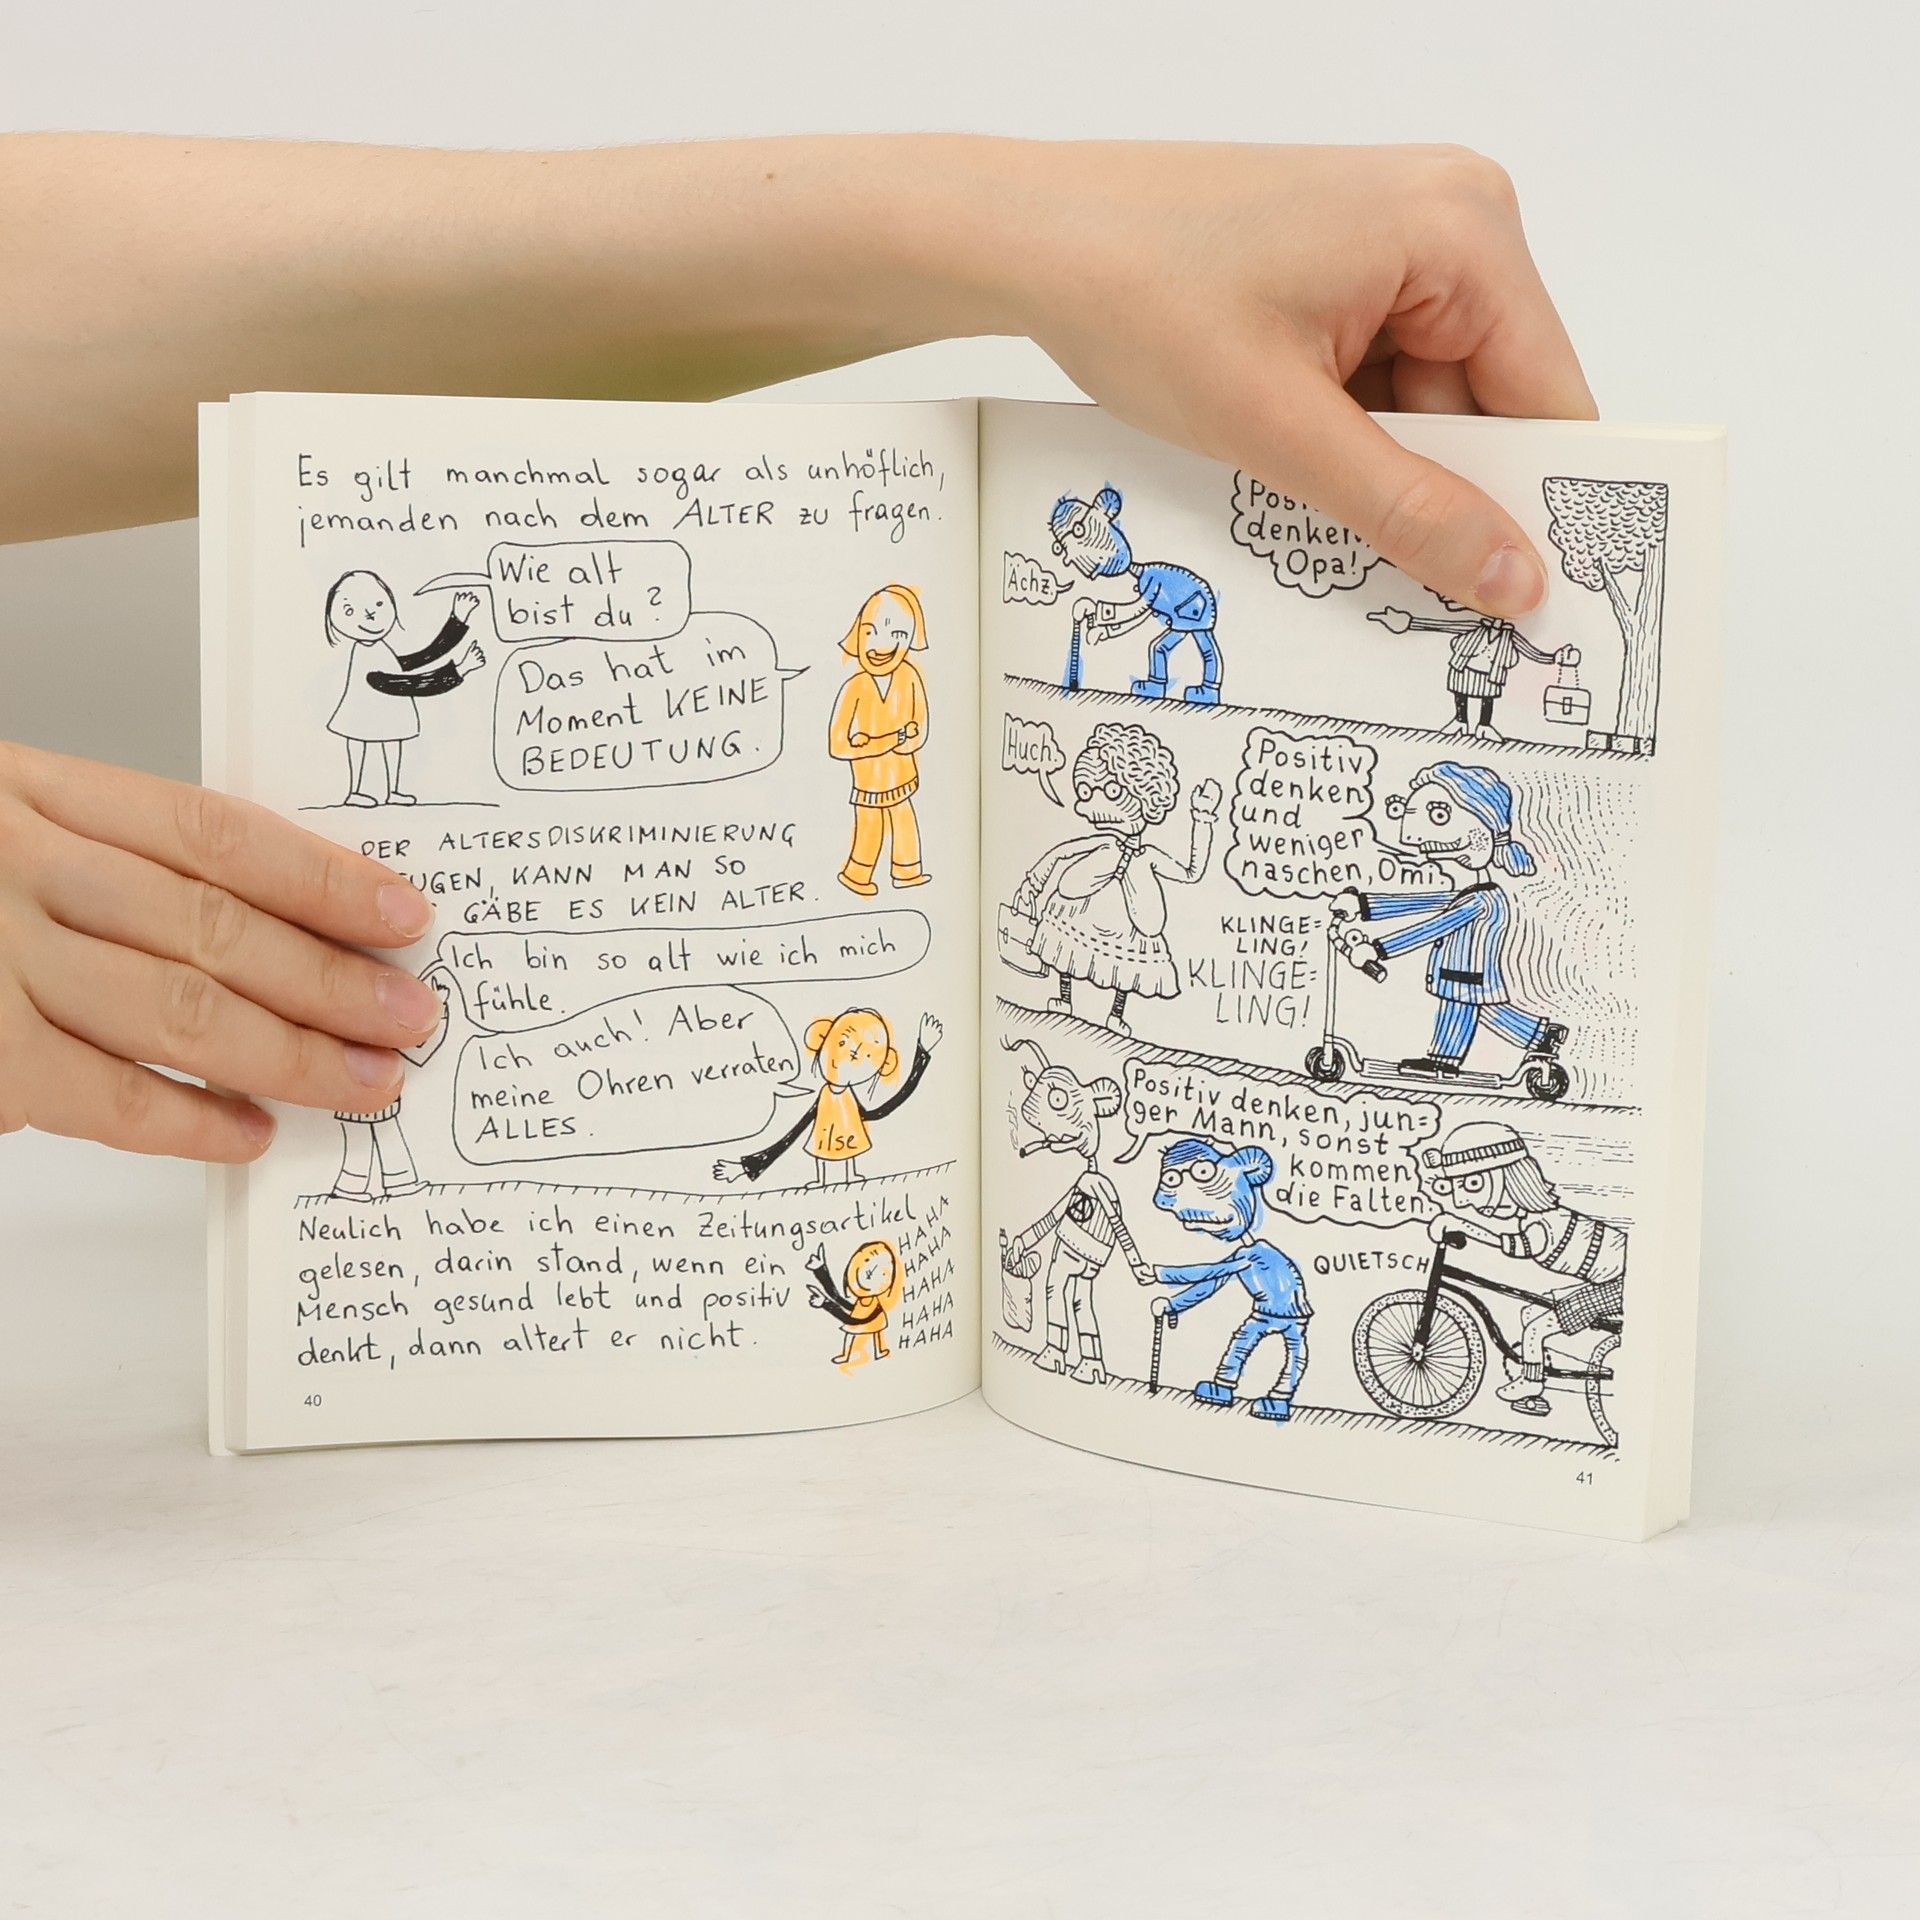 Es gilt manchmal sogar als unhöflich,
jemanden nach dem ALTER zu fragen.
Wie alt
bist du?
Das hat im
Moment KEINE
BEDEUTUNG.
DER ALTERSDISKRIMINIERUNG
KANN MAN SO
GÄBE ES KEIN ALTER.
Ich bin so alt wie ich mich
fühle.
Ich auch! Aber
meine Ohren verraten
ALLES.
ilse
Neulich habe ich einen Zeitungsartikel
gelesen, darin stand, wenn ein
Mensch gesund lebt und positiv
denkt, dann altert er nicht.
HAHA
HAHA
HAHA
HAHA
HAHA
40
Ächz.
denken,
Opa!
Huch.
Positiv
denken
und
weniger
naschen, Omi.
KLINGE=
LING!
KLINGE=
LING!
Positiv denken, jun=
ger Mann, sonst
kommen
die Falten.
QUIETSCH
41